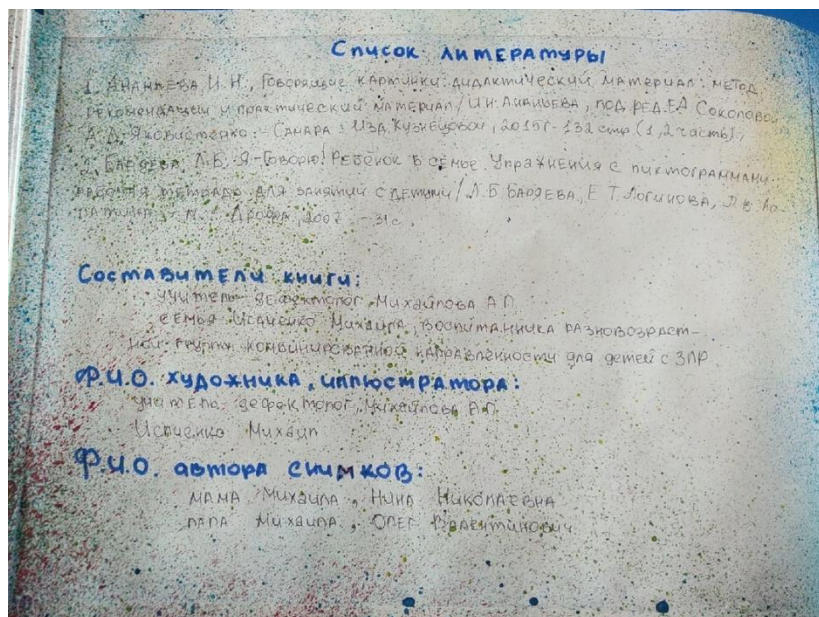 Список литературы
1. Ананьева И.Н., Говорящие картинки: дидактический материал: метод.
рекомендации и практический материал / И.Н. Ананьева, под ред. Е.Д Соколовой,
А.Д. Яковистенко. - Самара: Изд. Кузнецовой, 2015г - 132 стр. (1,2 часть);
2. Баряева Л.Б. Я-Говорю! Ребёнок в семье. Упражнения с пиктограммами.
рабочая тетрадь для занятий с детьми / Л.Б Баряева, Е.Т. Логинова, Л.В. Ло-
патина - М.: Дрофа, 2007. - 31с.
Составители книги:
учитель-дефектолог Михайлова А.П.
семья Исаченко Михаила, воспитанника разновозраст-
ной группы комбинированной направленности для детей с ЗПР
Ф.И.О. художника, иллюстратора:
учитель-дефектолог, Михайлова А.П.
Михаил
Ф.И.О. автора снимков:
мама Михаила, Нина Николаевна
папа Михаила, Олег Валентинович